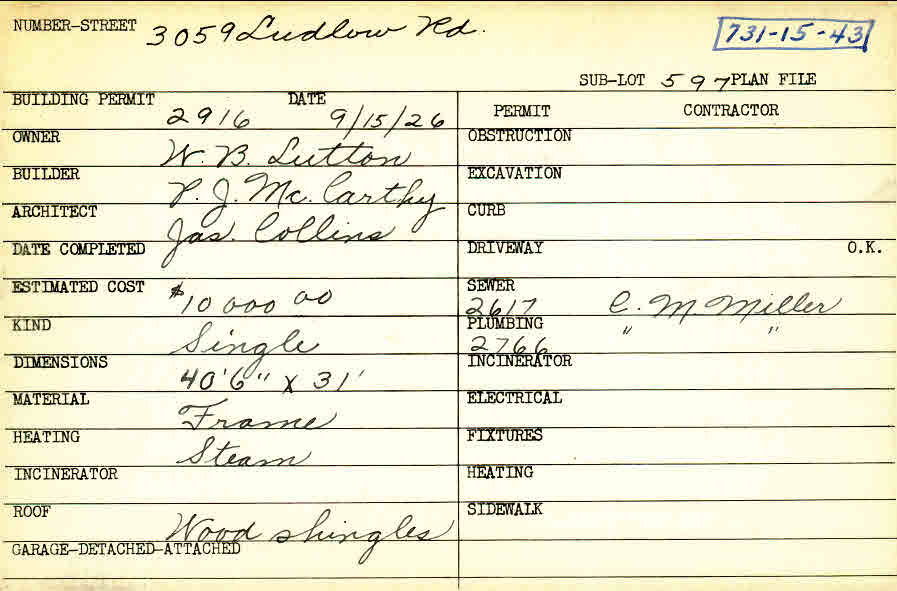 NUMBER-STREET 3059 Ludlow Rd.
731-15-43
SUB-LOT 597 PLAN FILE
BUILDING PERMIT 2916 DATE 9/15/26
PERMIT CONTRACTOR
OWNER W. B. Lutton
OBSTRUCTION
BUILDER P. J. Mc. Carthy
EXCAVATION
ARCHITECT Jas. Collins
CURB
DATE COMPLETED
DRIVEWAY O.K.
ESTIMATED COST $10 000 00
SEWER 2617 C. M. Miller
KIND Single
PLUMBING 2766 " "
DIMENSIONS 40'6" x 31'
INCINERATOR
MATERIAL Frame
ELECTRICAL
HEATING Steam
FIXTURES
INCINERATOR
HEATING
ROOF Wood shingles
SIDEWALK
GARAGE-DETACHED-ATTACHED